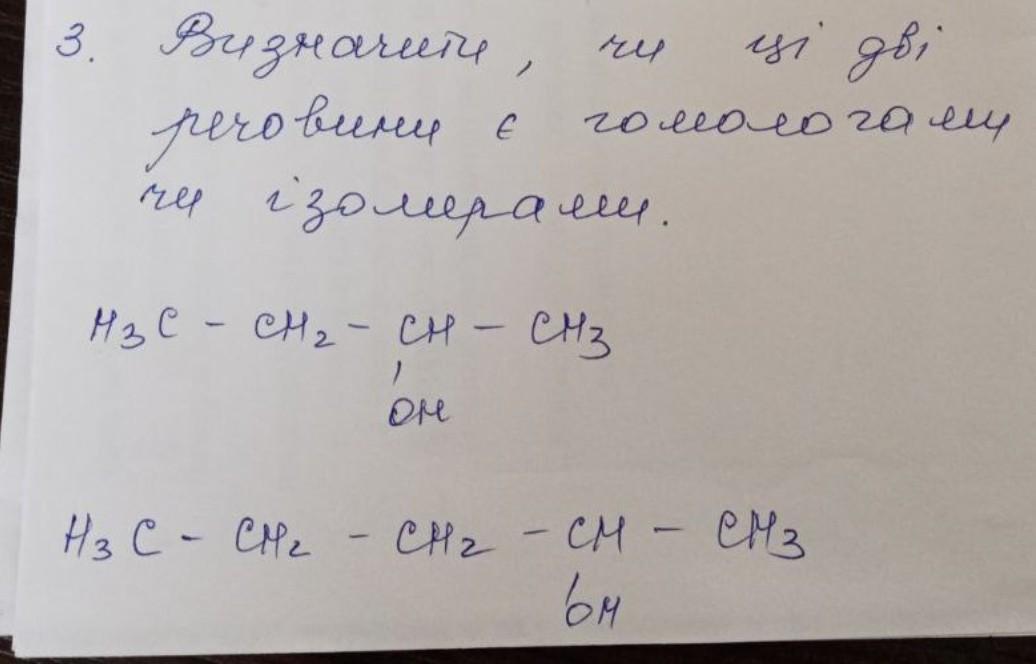 3. Визначити, чи ці дві
речовини є гомологами
чи ізомерами.
H₃C - CH₂ - CH - CH₃
OH
H₃C - CH₂ - CH₂ - CH - CH₃
OH